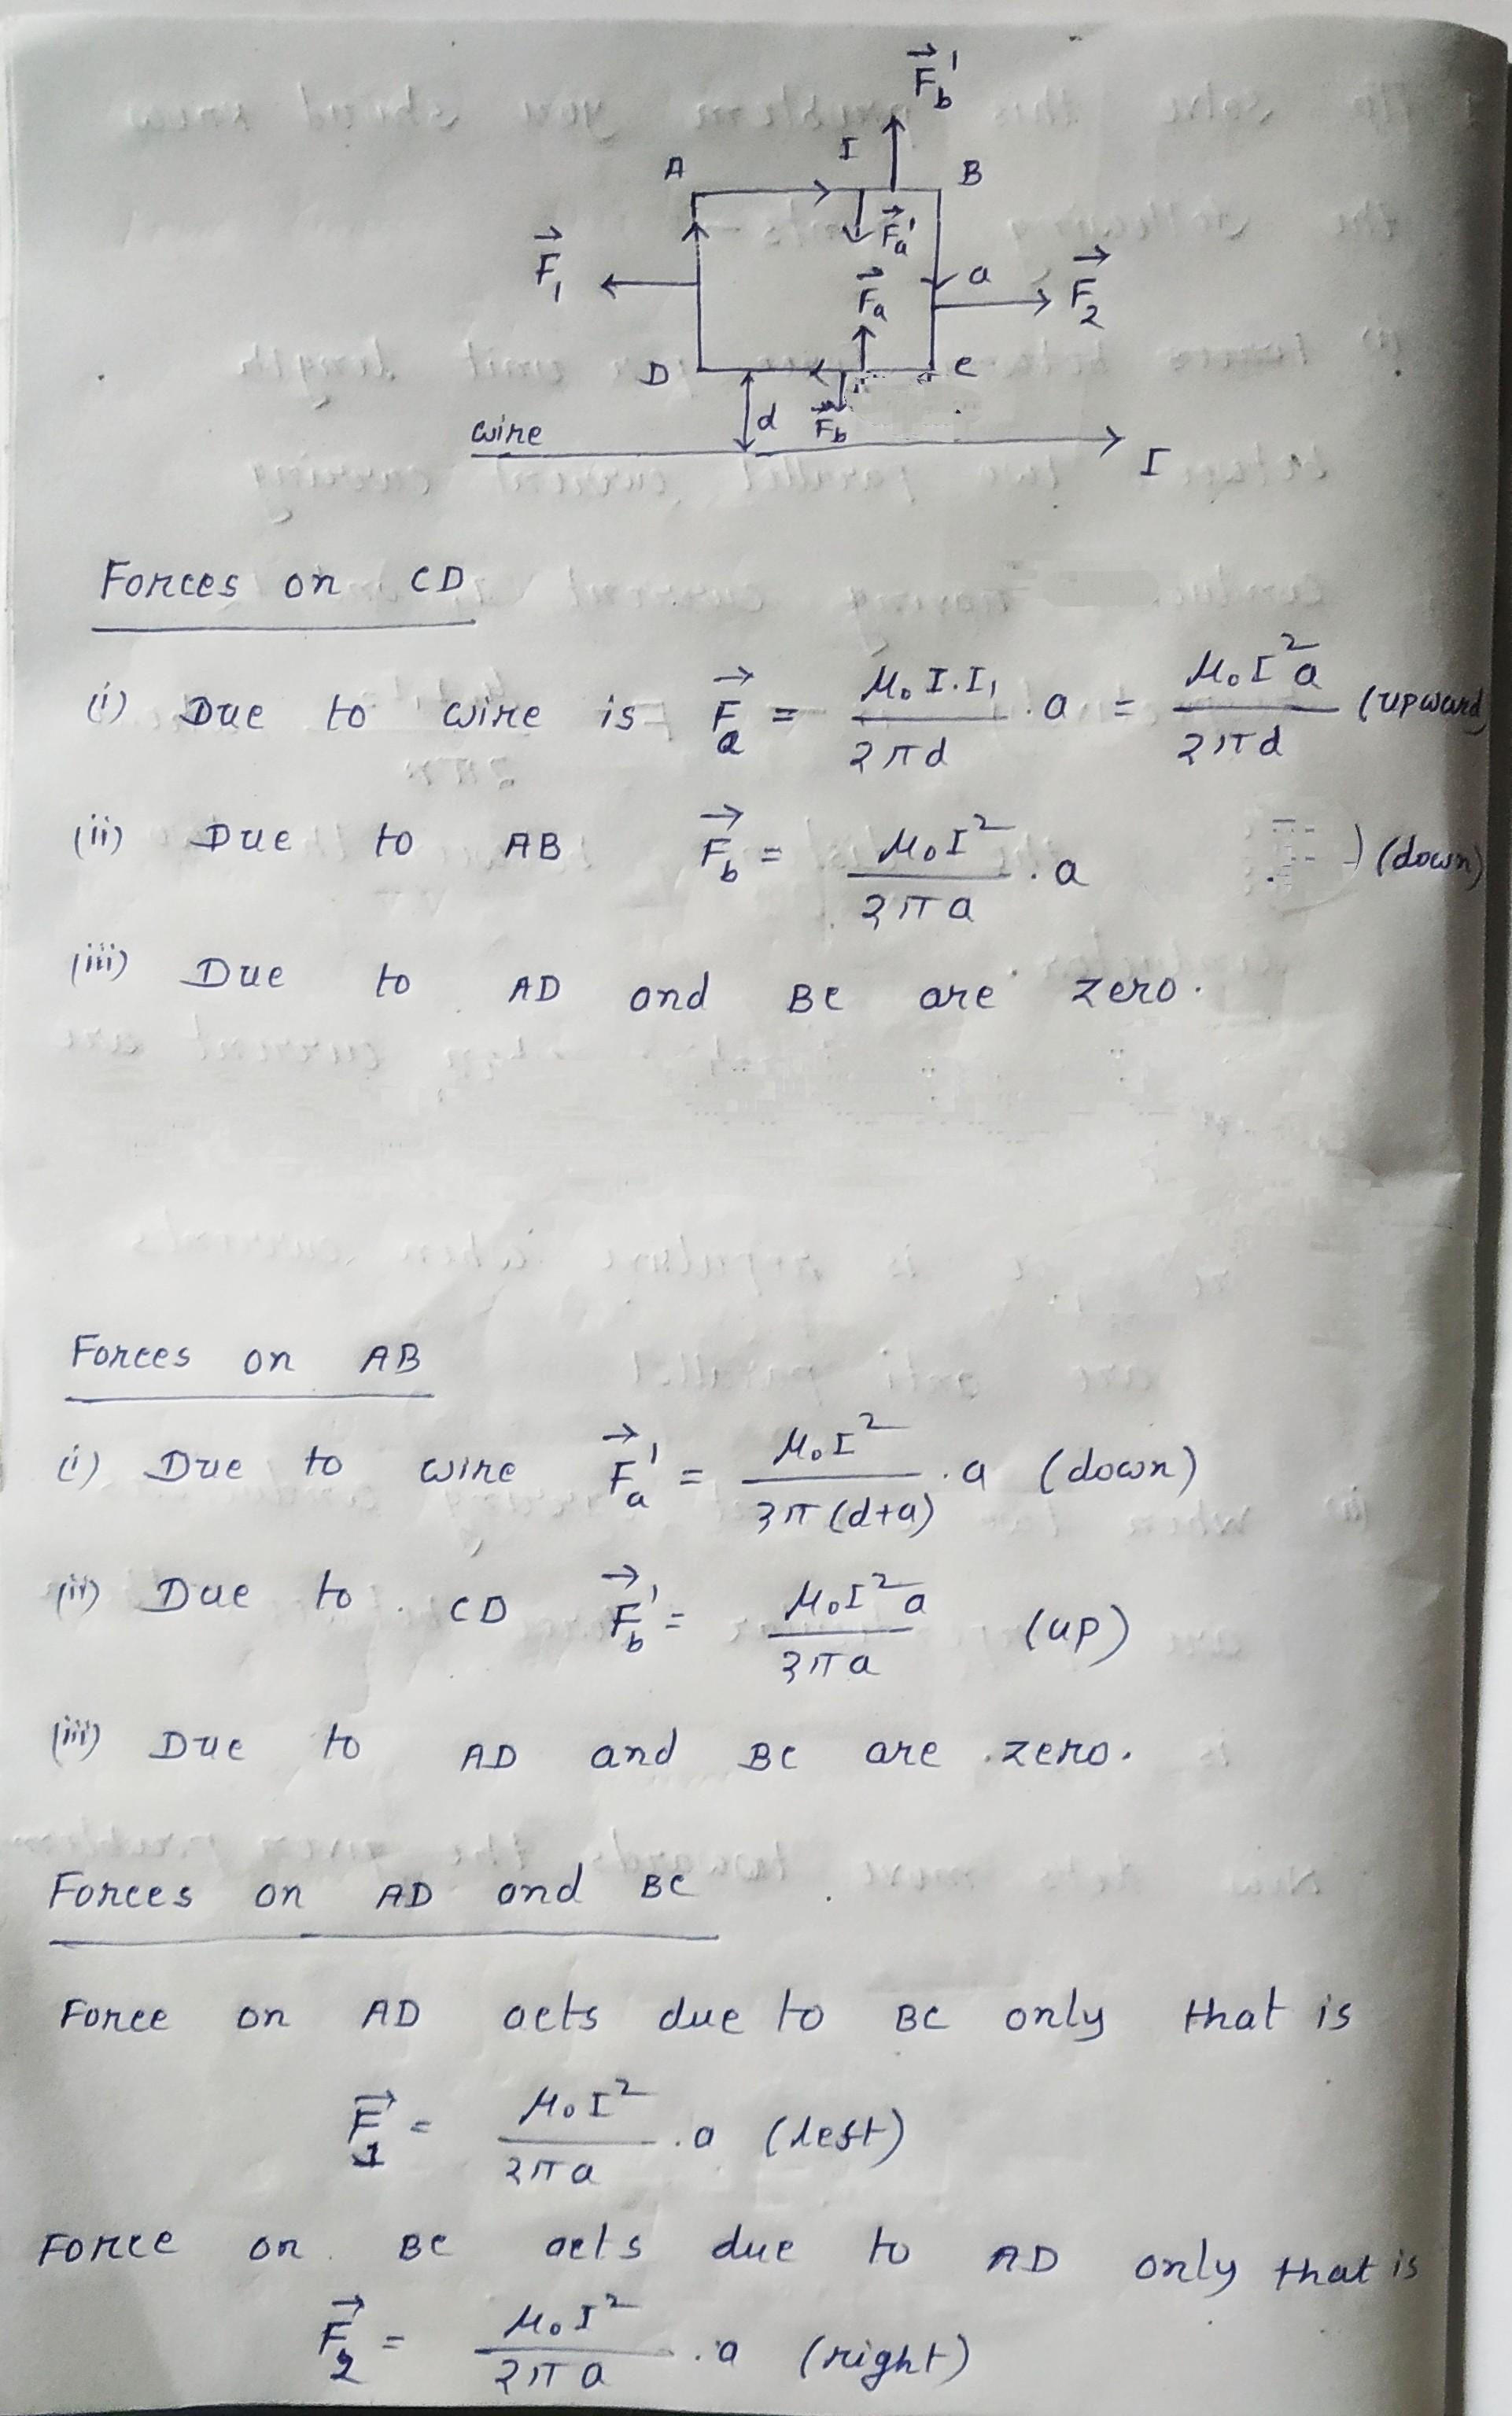 F⃗b'
I
A
B
F⃗a'
F⃗1
F⃗a
a
F⃗2
D
C
d
F⃗b
wire
I
Forces on CD
(i) Due to wire is F⃗a = μ₀I.I₁/2πd .a = μ₀I²a/2πd (upward)
(ii) Due to AB F⃗b = μ₀I²/2πa .a (down)
(iii) Due to AD and BC are zero.
Forces on AB
(i) Due to wire F⃗a' = μ₀I²/2π(d+a) .a (down)
(ii) Due to CD F⃗b' = μ₀I²a/2πa (up)
(iii) Due to AD and BC are zero.
Forces on AD and BC
Force on AD acts due to BC only that is
F⃗1 = μ₀I²/2πa .a (left)
Force on BC acts due to AD only that is
F⃗2 = μ₀I²/2πa .a (right)